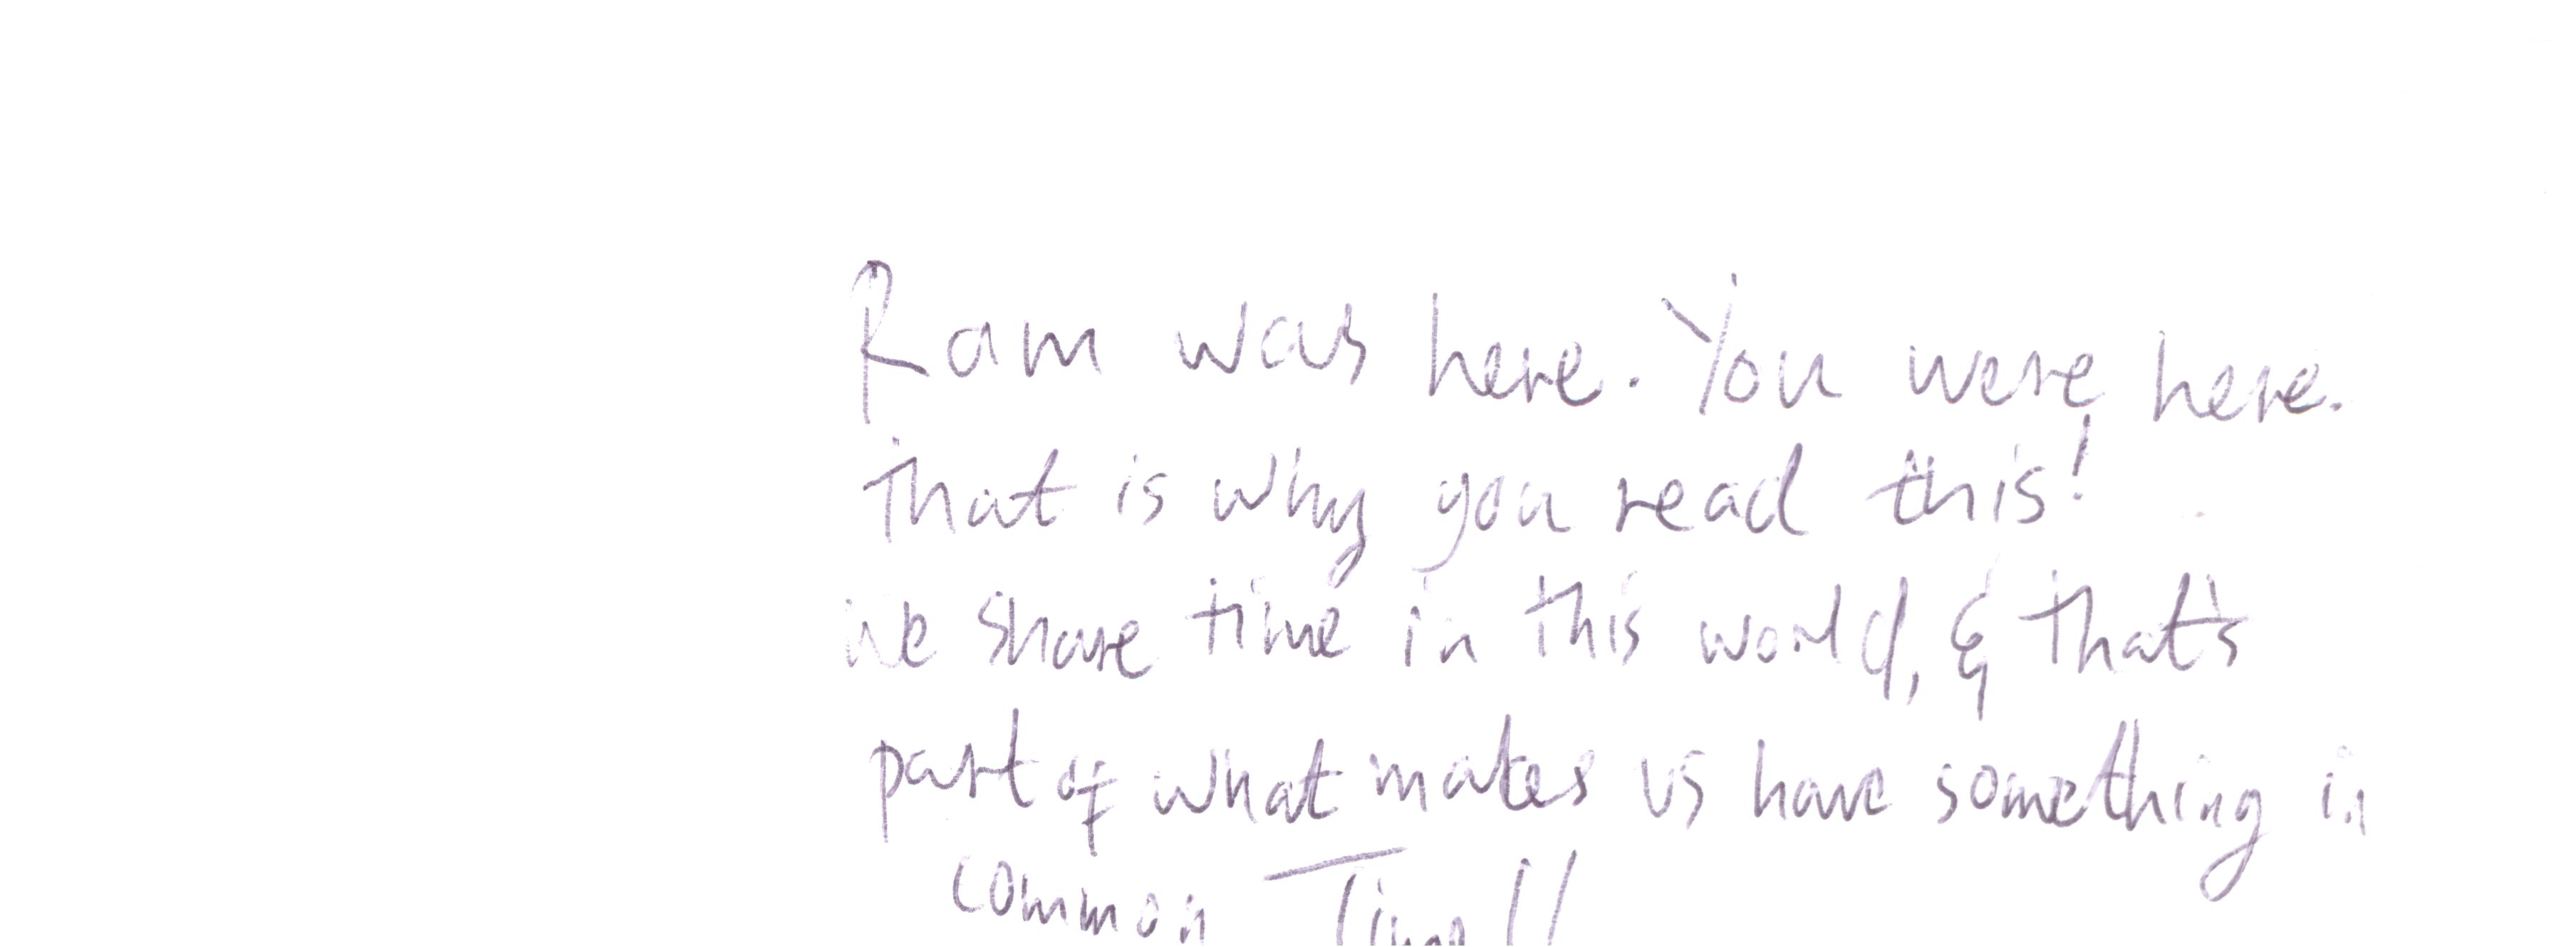 Ram was here. You were here.
that is why you read this!
we share time in this world, & that's
part of what makes us have something in
common Time!!